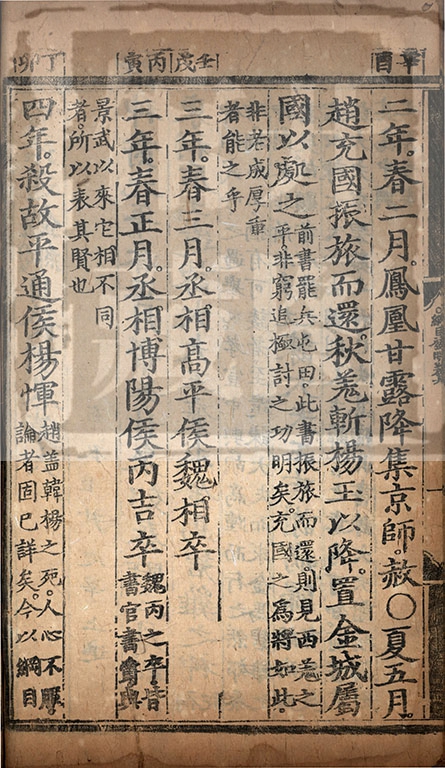 辛酉
二年。春二月。鳳凰甘露降集京師。赦○夏五月。
趙充國振旅而還。秋。羌斬楊玉以降。置金城屬
國以處之
前書罷兵屯田。此書振旅而還。則見西羌之
平。非窮追極討之功明矣。充國之爲將如此。
非老成厚重
者能之乎
壬戌
三年。春三月。丞相高平侯魏。相卒
丙寅
三年。春正月。丞相博陽侯丙吉卒
魏丙之卒。皆
書官書爵與
景武以來它相不同
者。所以表其賢也
丁卯
四年。殺故平通侯楊惲
趙蓋韓楊之死。人心不厭。
論者固已詳矣。今以綱目